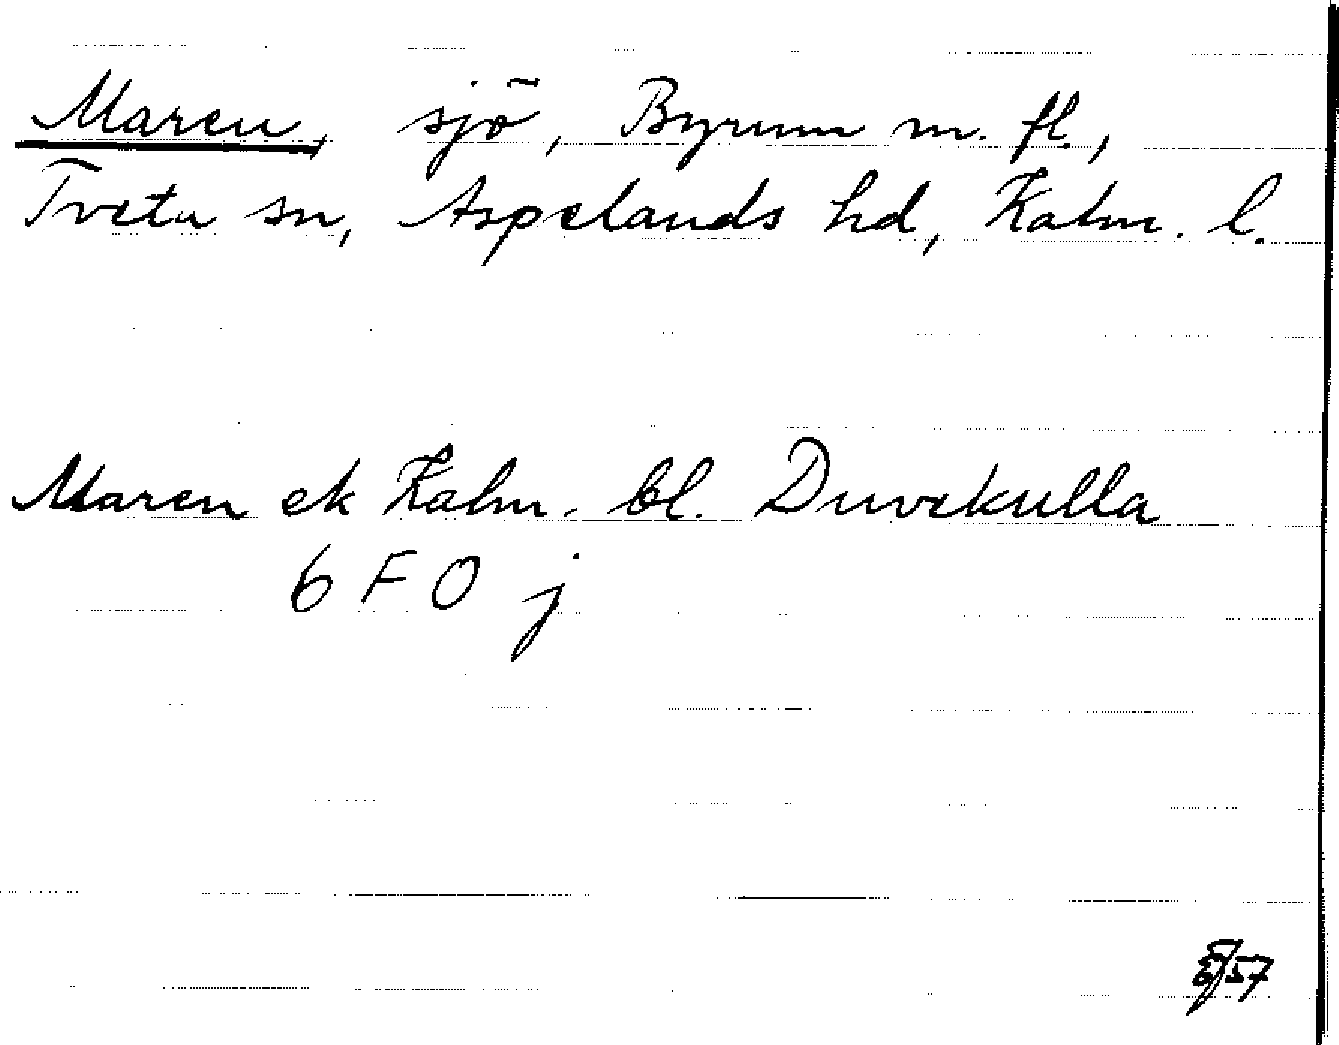 Maren, sjö, Byrum m. fl.,
Tveta sn, Aspelands hd, Kalm. l.
Maren ek Kalm. bl. Duvekulla
6 F O j
/57